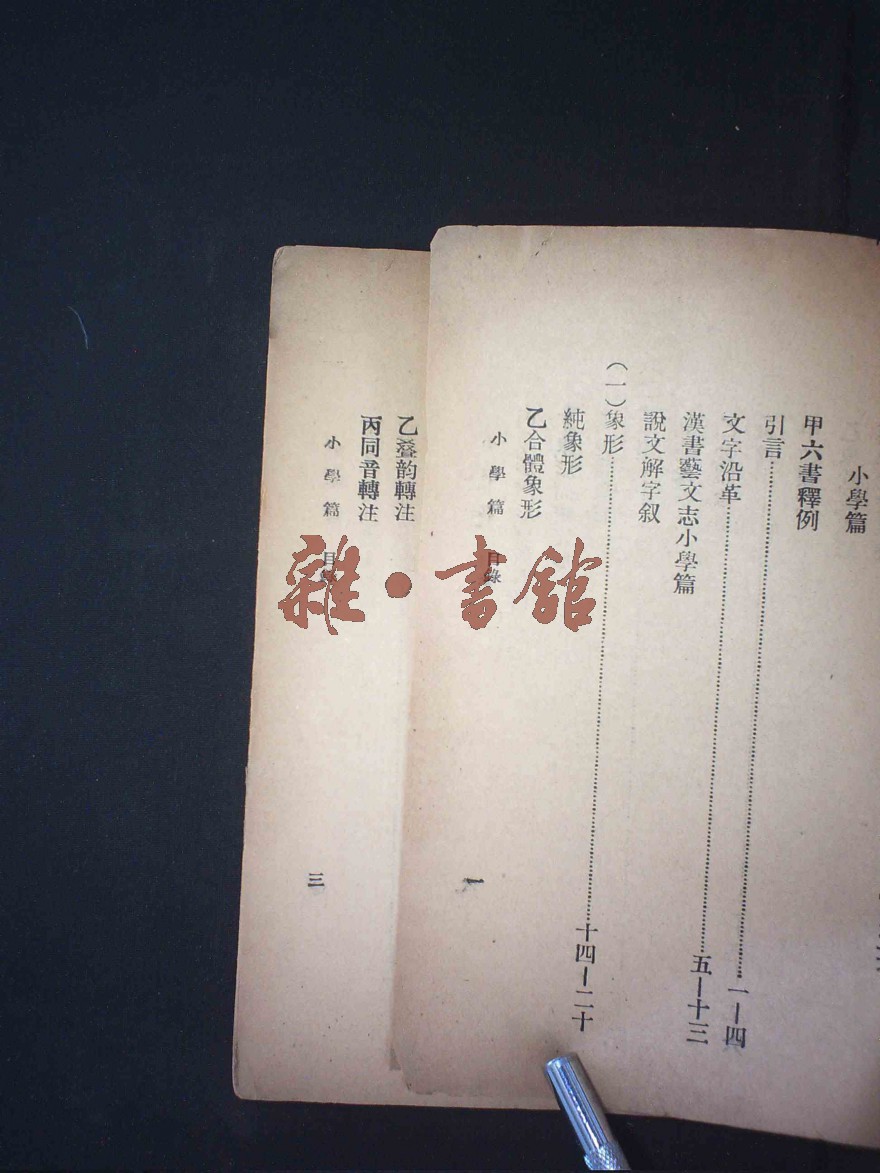 小學篇
甲六書釋例
引言……………………一—四
文字沿革……………………五—十三
漢書藝文志小學篇
說文解字叙
(一)象形……………………十四—二十
純象形
乙合體象形
小學篇 目錄 一
乙叠韵轉注
丙同音轉注
小學篇 目錄 三
雜·書館